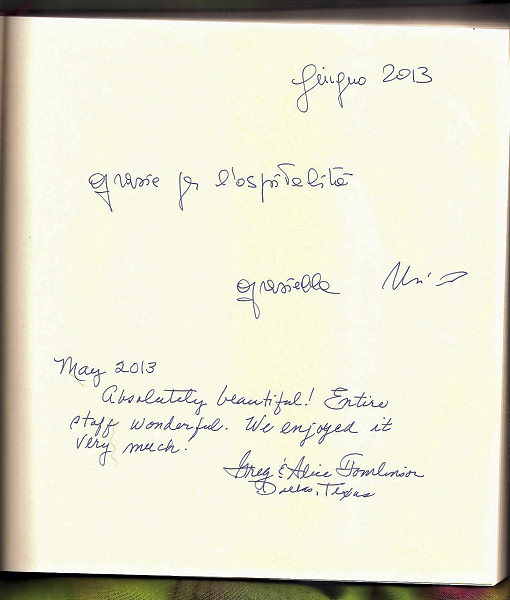 Giugno 2013
grazie per l'ospitalità
Graziella
May 2013
Absolutely beautiful! Entire
staff wonderful. We enjoyed it
very much.
Greg & Alice Tomlinson
Dallas, Texas